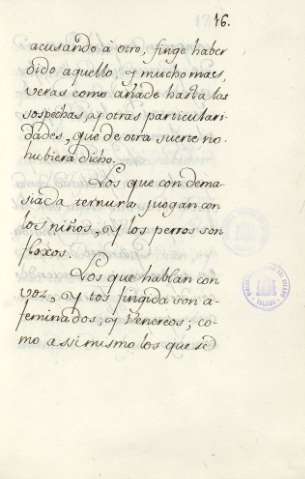 16.
acusando à otro, finge haber
dido aquello, y mucho mas,
veras como añade hasta las
sospechas, y otras particulari
dades, que de otra suerte no
hubiera dicho.
Los que con dema-
siada ternura juegan con
los niños, y los perros son
floxos.
Los que hablan con
voz, y tos fingida son a-
feminados, y Venereos; co-
mo assimismo los que se